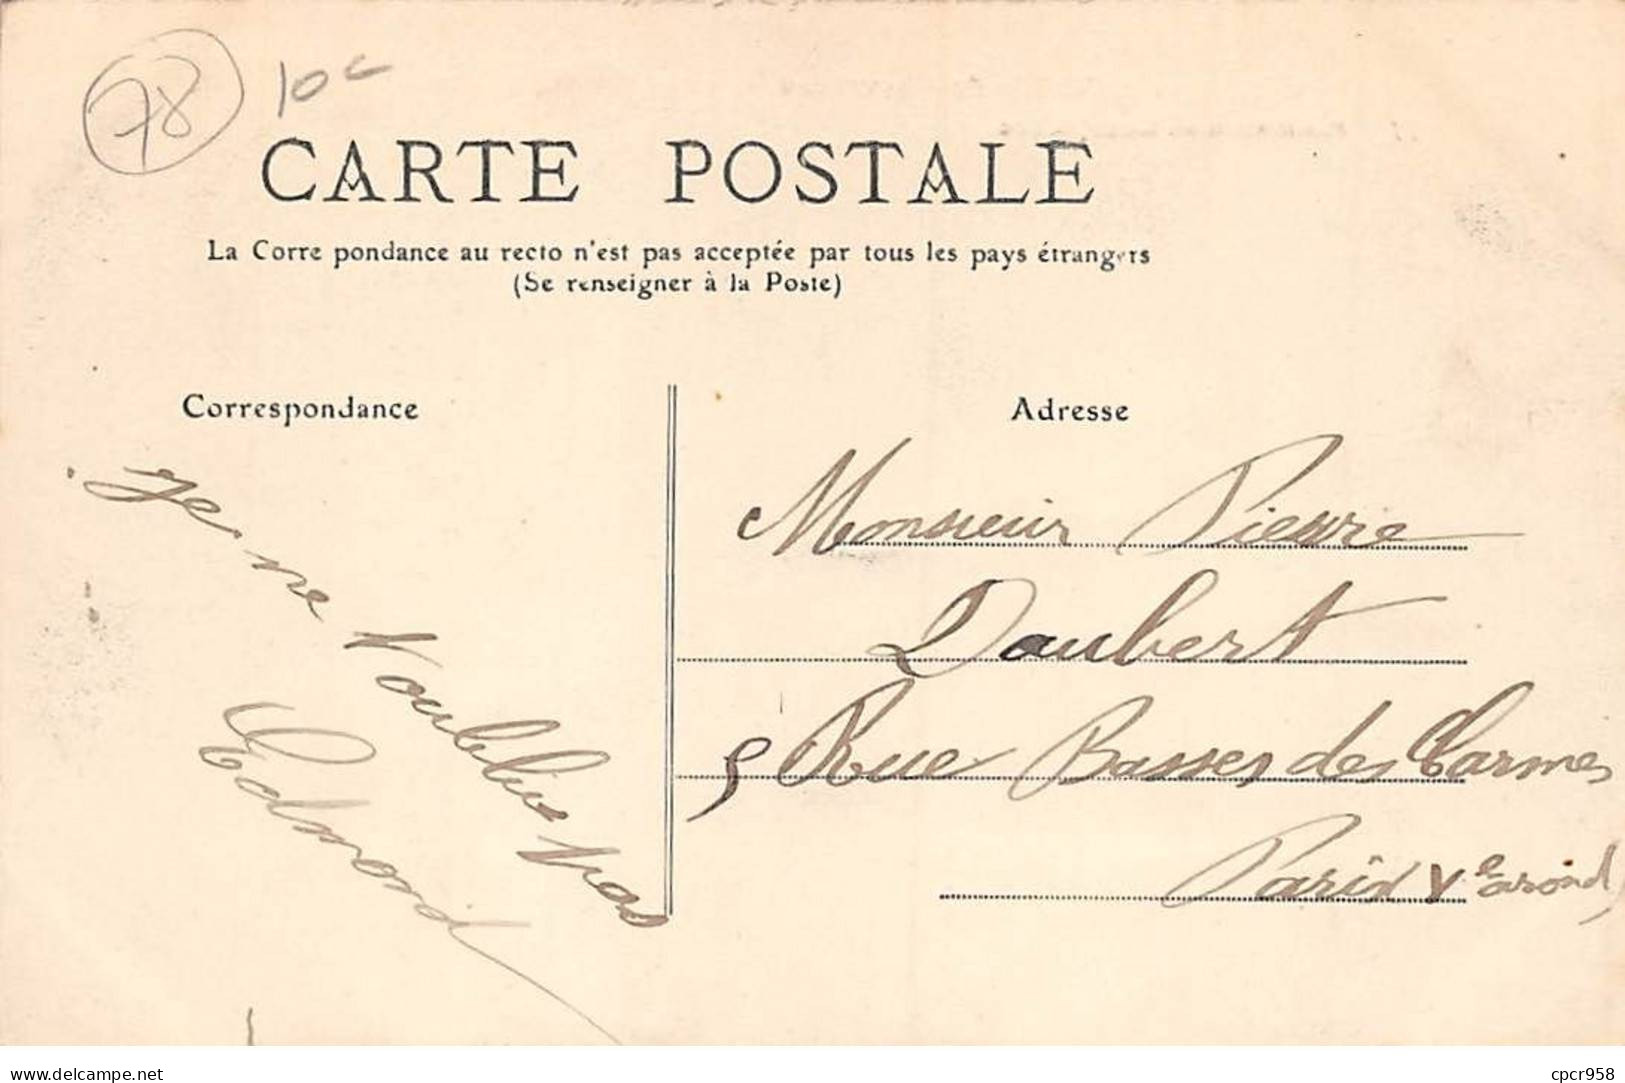 78
10c
CARTE POSTALE
La Corre pondance au recto n'est pas acceptée par tous les pays étrangers
(Se renseigner à la Poste)
Correspondance
Je ne t'oublie pas
Edmond
Adresse
Monsieur Pierre
Daubert
9 Rue Basses des Carmes
Paris Ve arond
www.delcampe.net
cpcr958